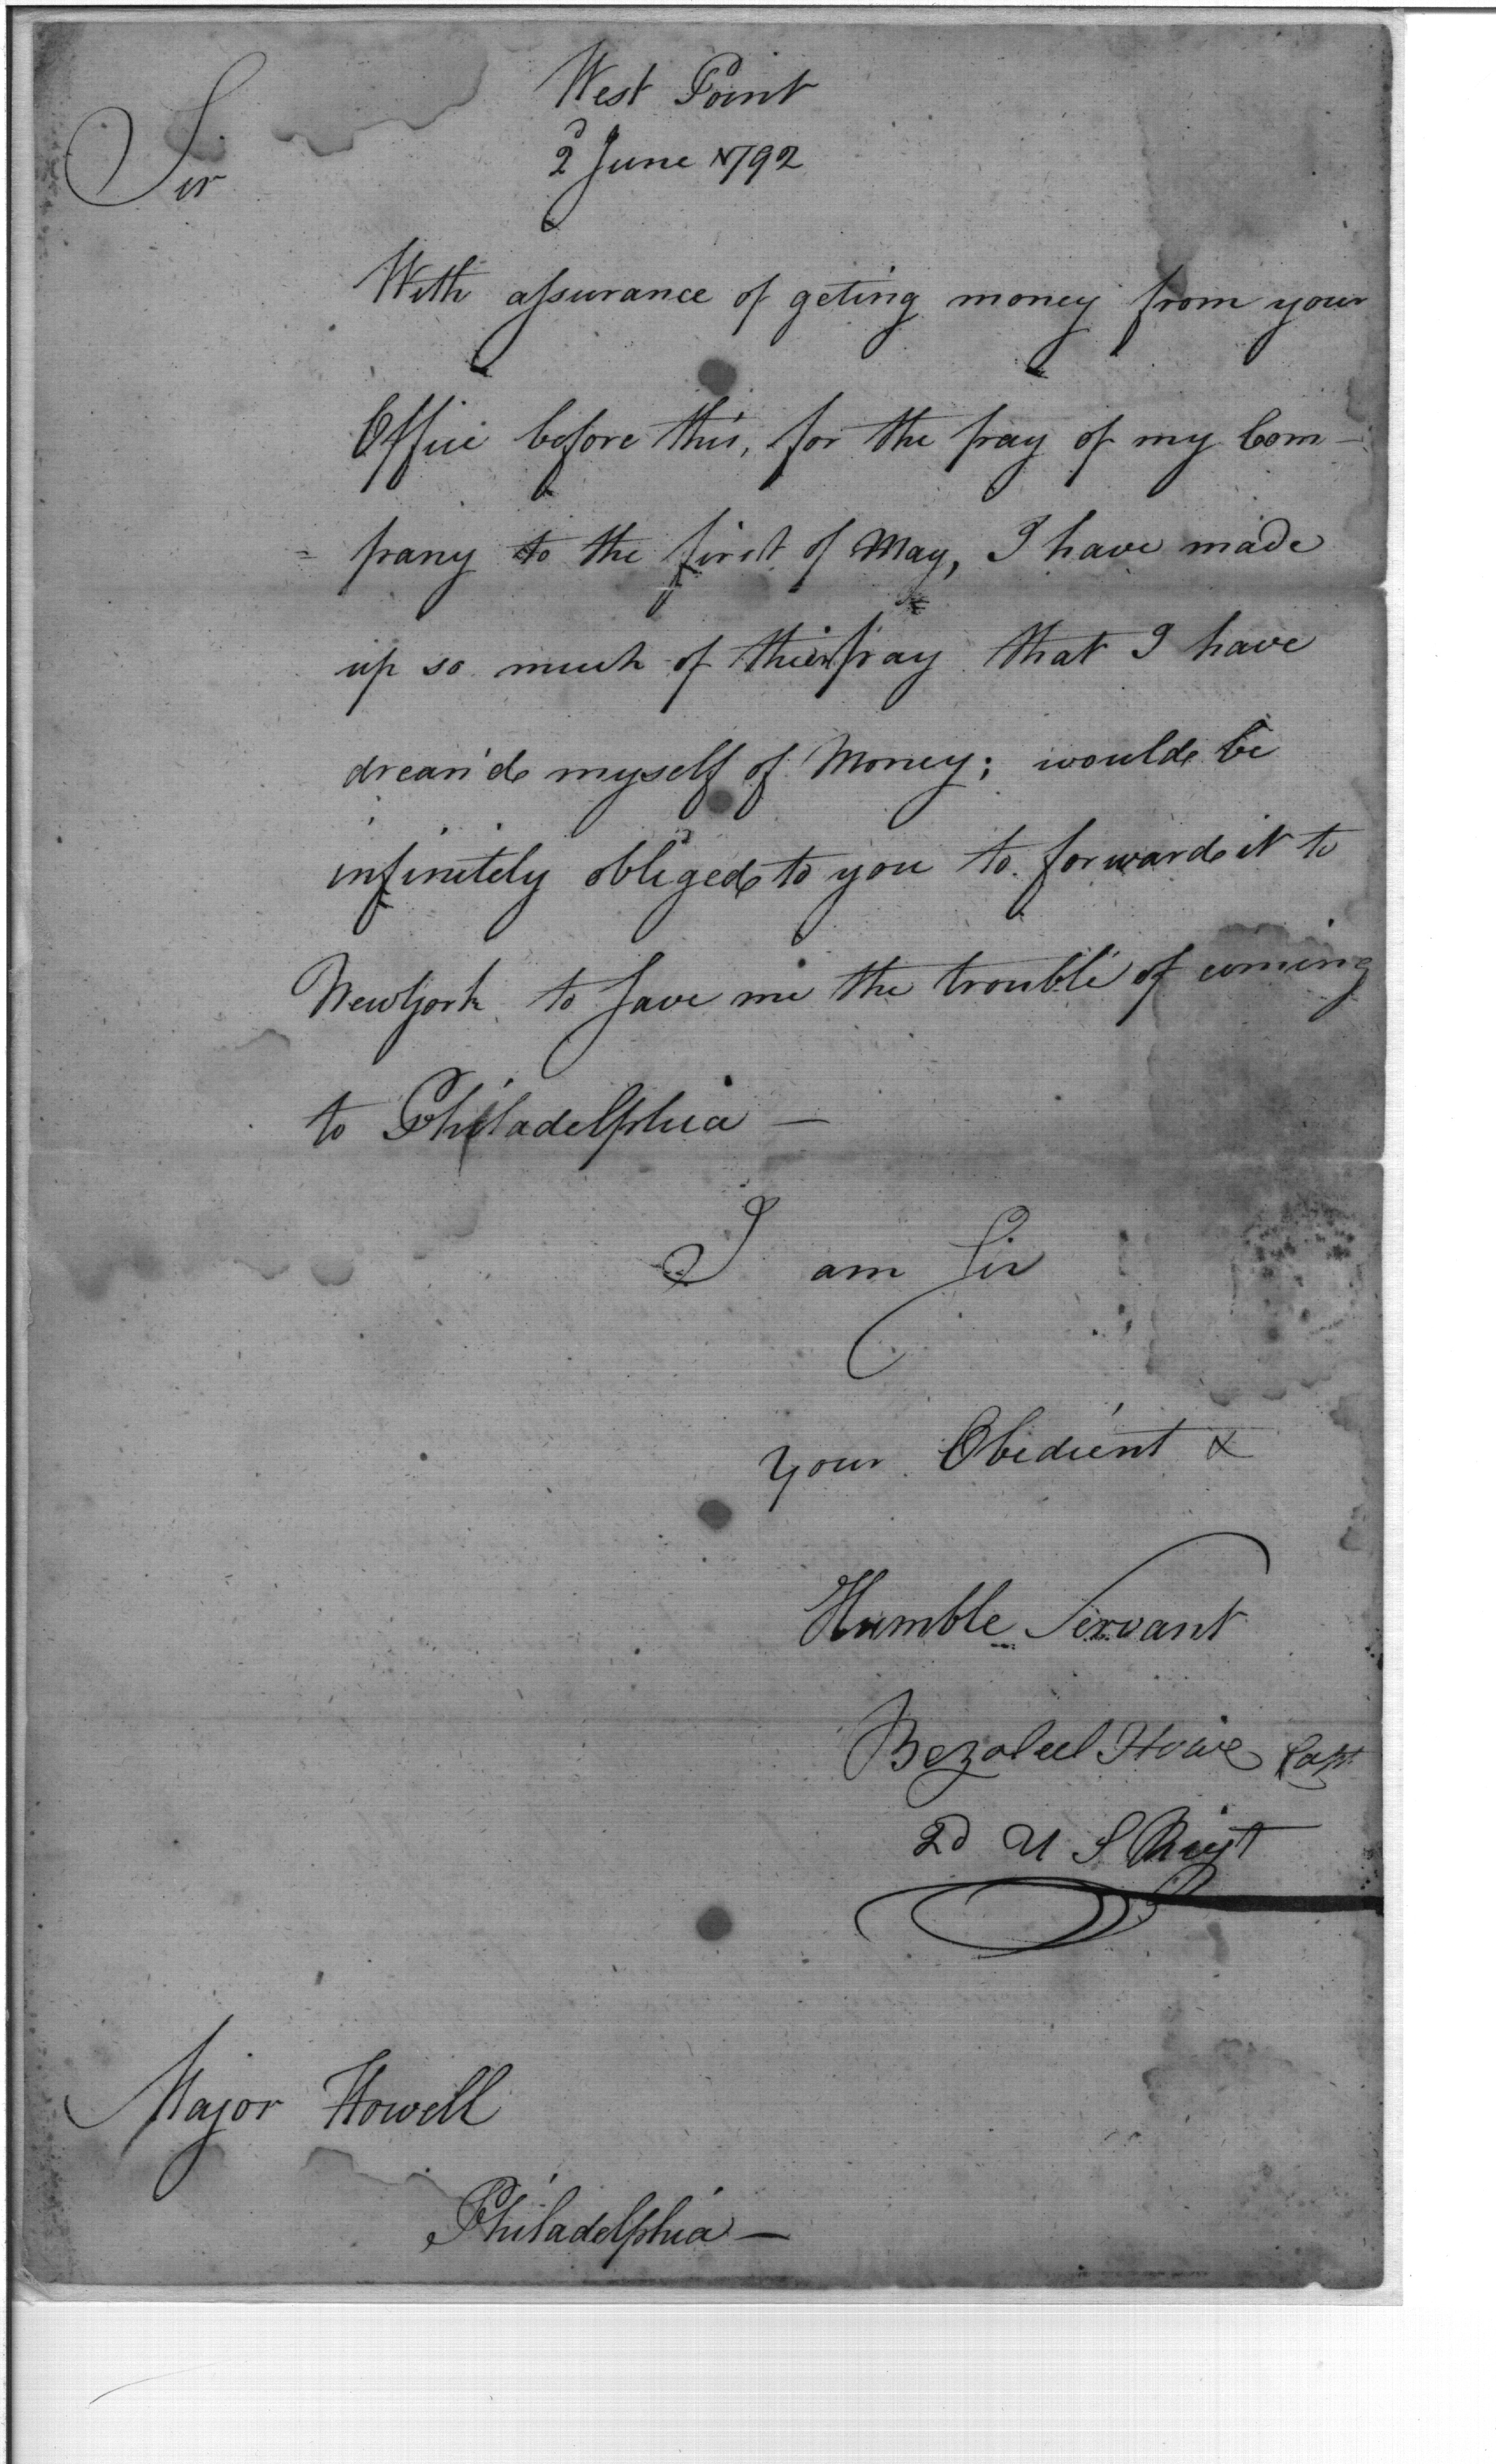 West Point
2d June 1792
Sir
With assurance of geting money from your
Office before this, for the pay of my Com-
=pany to the first of May, I have made
up so much of their pay that I have
drean'd myself of Money; would be
infinitely obliged to you to forward it to
Newyork to save me the trouble of coming
to Philadelphia —
I am Sir
your Obedient &
Humble Servant
Bezaleel Howe Capt
2d U S Regt
Major Howell
Philadelphia —